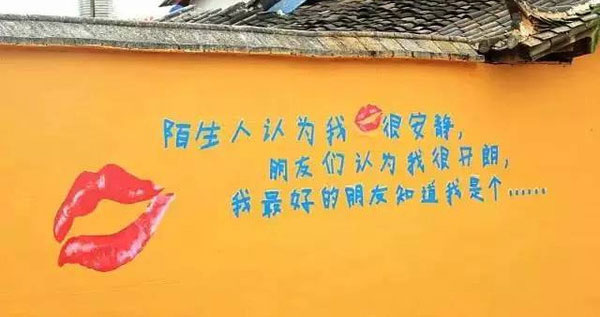 陌生人认为我很安静，
朋友们认为我很开朗，
我最好的朋友知道我是个……